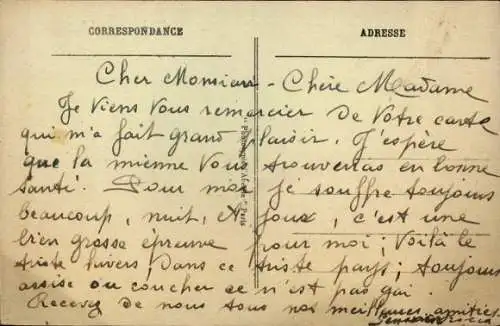 CORRESPONDANCE
ADRESSE
Cher Monsieur - Chère Madame
Je viens vous remercier de votre carte
qui m'a fait grand plaisir. J'espère
que la mienne vous trouveras en bonne
santé. Pour moi je souffre toujours
beaucoup, nuit, et jour, c'est une
bien grosse épreuve pour moi; voilà le
triste hivers, dans ce triste pays; toujours
assise ou coucher ce n'est pas gai.
Recevez de nous tous nos meilleures amitiés